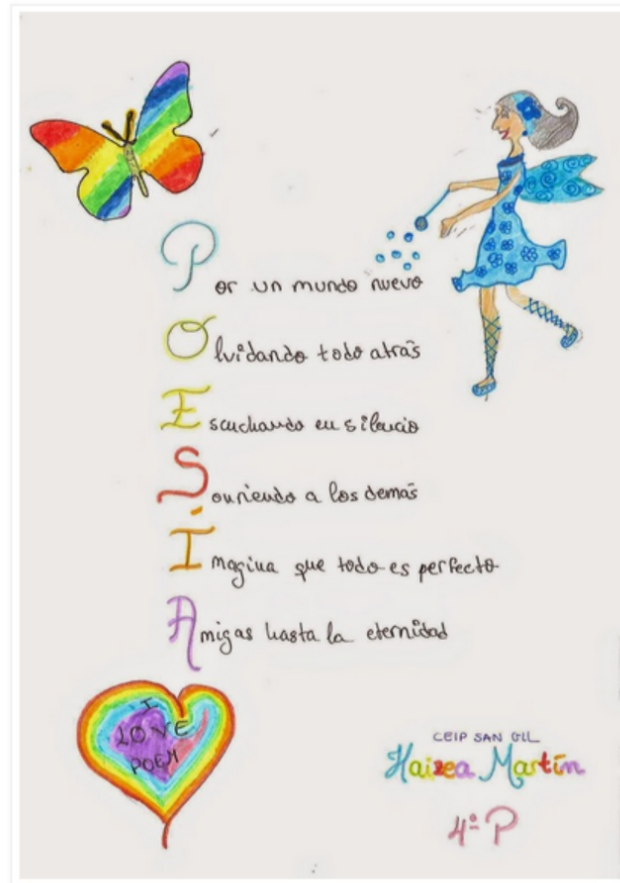 Por un mundo nuevo
Olvidando todo atrás
Escuchando en silencio
Sonriendo a los demás
Imagina que todo es perfecto
Amigas hasta la eternidad
I
LOVE
POEM
CEIP SAN GIL
Haizea Martín
4º P